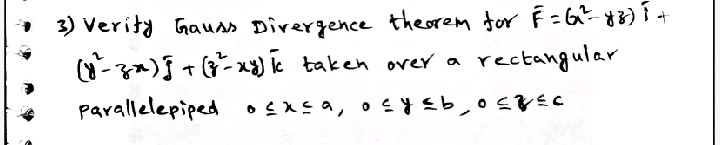 3) Verify Gauss Divergence theorem for F̄ = (x² - yz) ī +
(y² - zx) j̄ + (z² - xy) k̄ taken over a rectangular
parallelepiped 0 ≤ x ≤ a, 0 ≤ y ≤ b, 0 ≤ z ≤ c